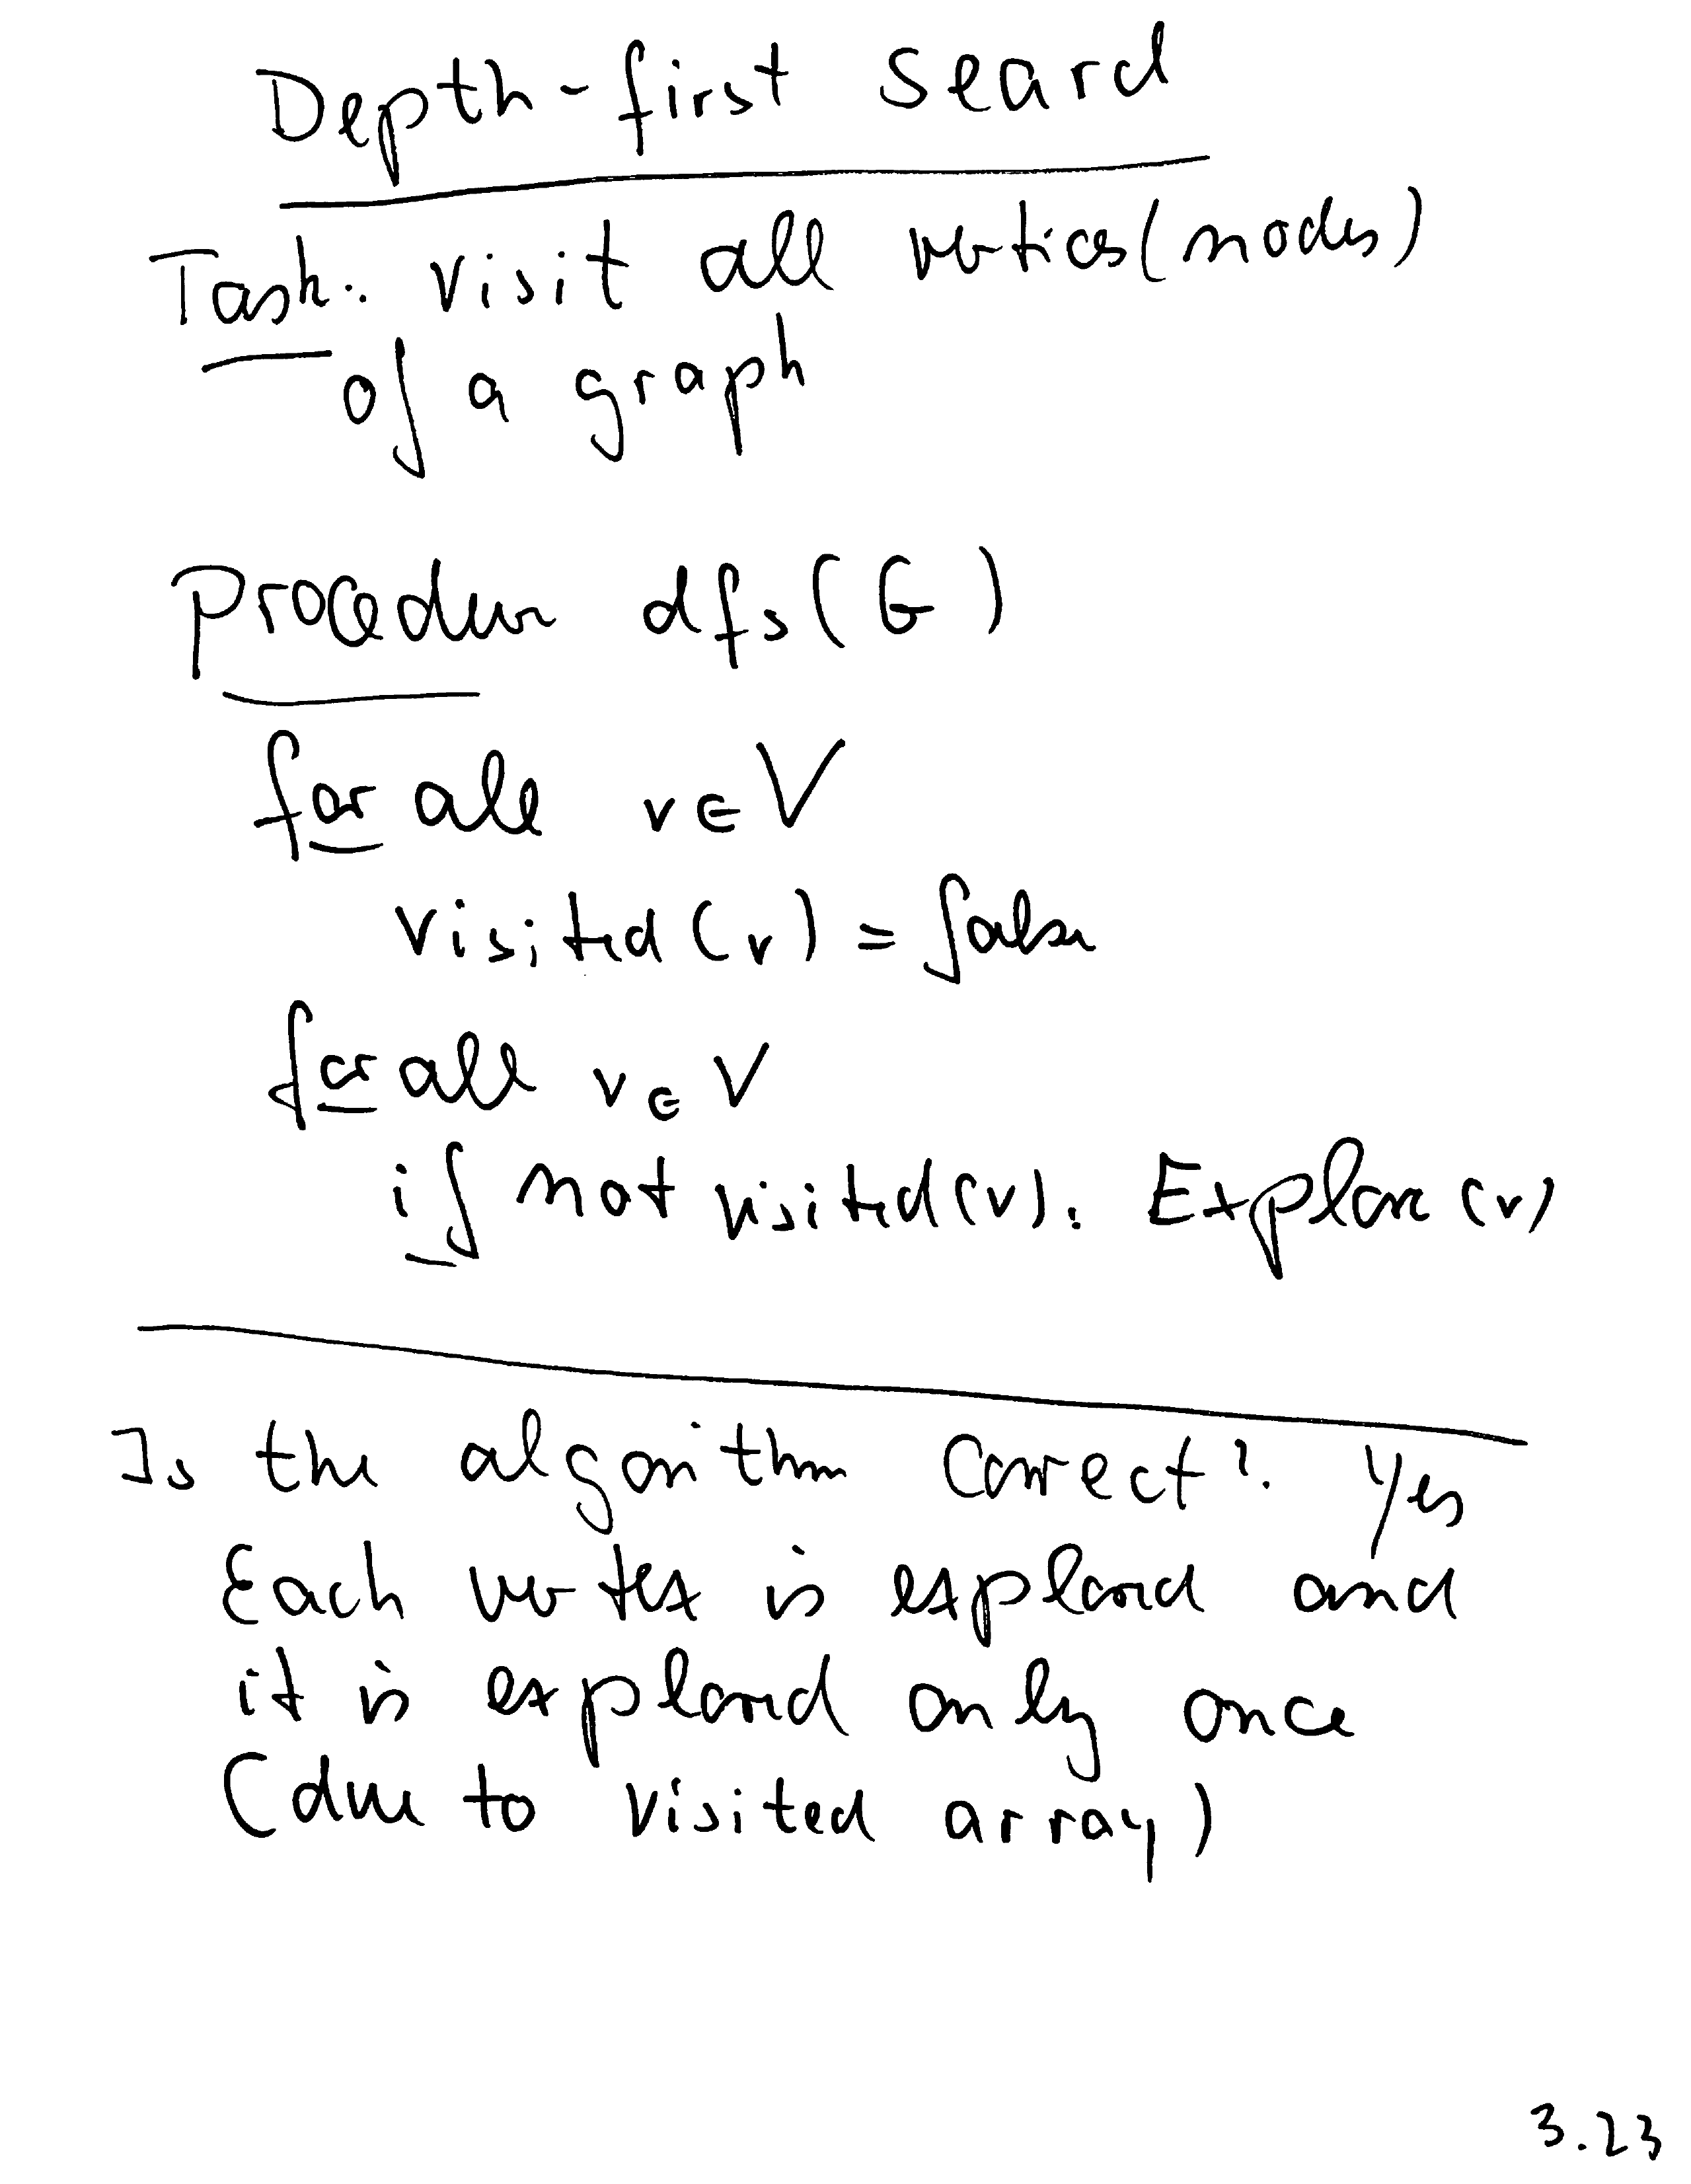 Depth-first search
Task: visit all vertices (nodes)
of a graph
procedure dfs(G)
for all v ∈ V
visited(v) = false
for all v ∈ V
if not visited(v): Explore(v)
Is the algorithm correct? Yes
Each vertex is explored and
it is explored only once
(due to visited array)
3.23